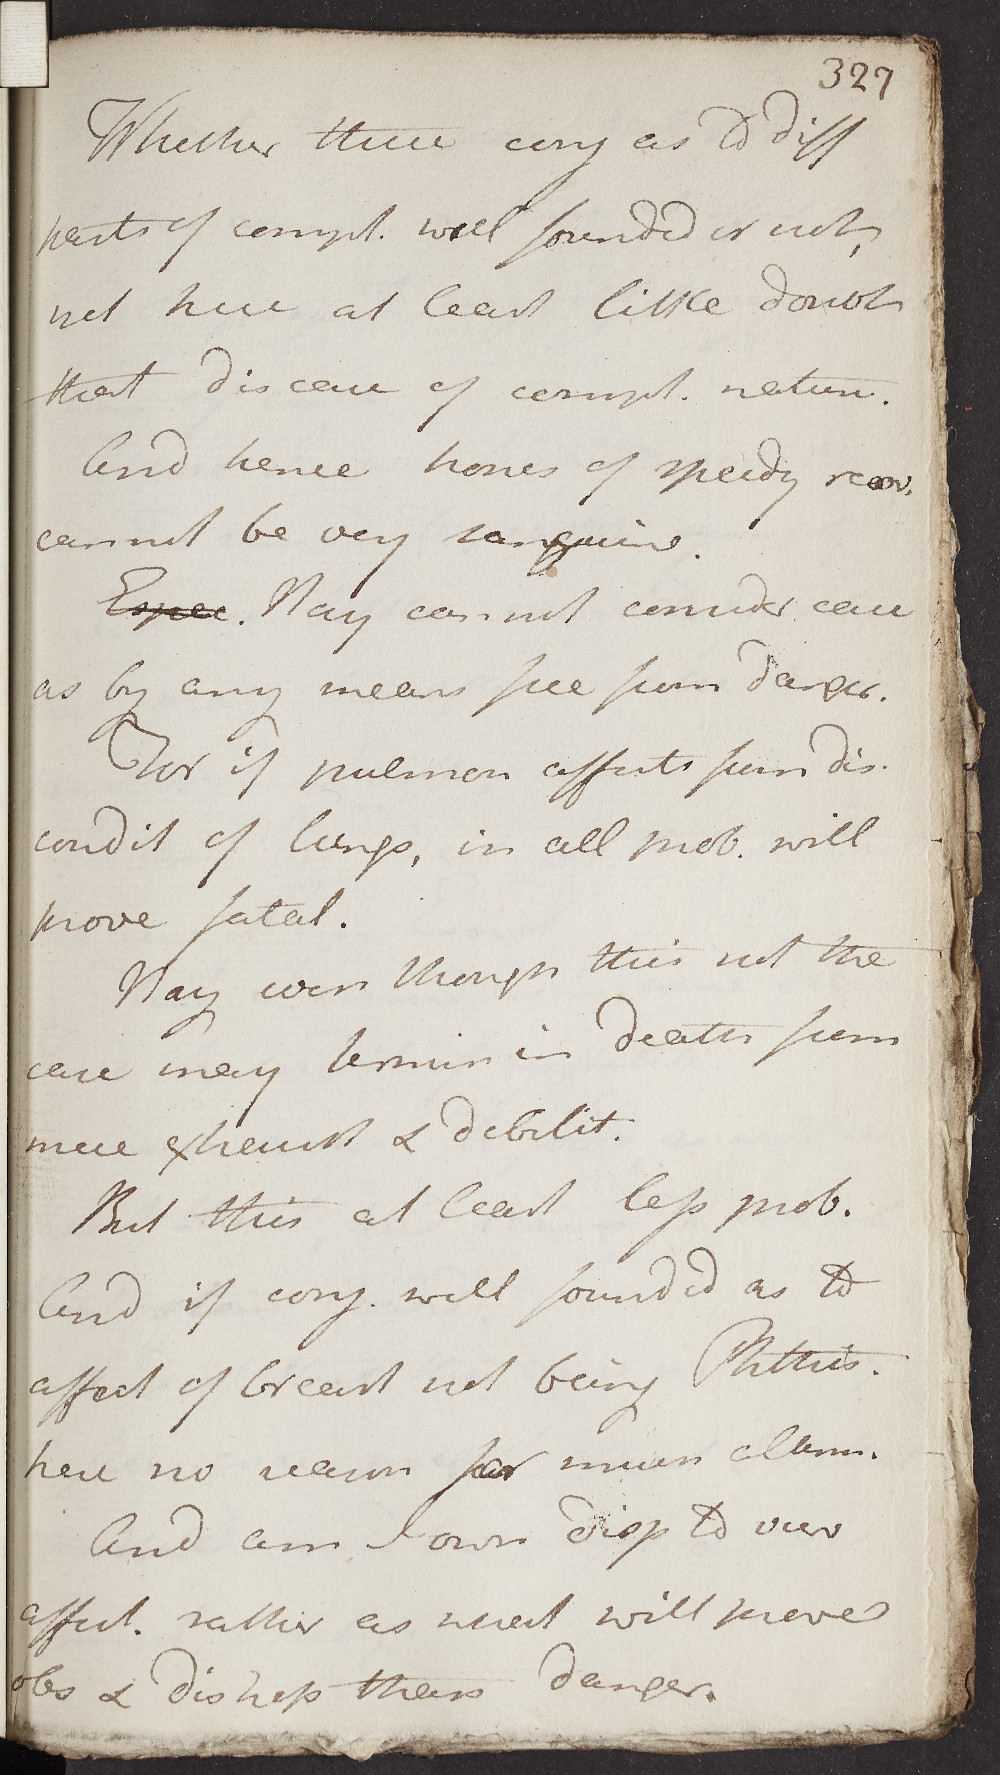 327
Whether these conj as to diff
parts of compl. well founded or not,
yet here at least little doubt
that disease of compl. nature.
And hence hopes of speedy recov.
cannot be very sanguine.
Espec. Nay cannot consider case
as by any means free from danger.
For if pulmon affects from dis.
condit of lungs, in all prob. will
prove fatal.
Nay even though this not the
case may termin in death from
mere exhaust & debilit.
But this at least less prob.
And if conj. well founded as to
affect of breast not being Phthis.
here no reason for much alarm.
And am I own disp to view
affect. rather as what will prove
obs & dishess than danger.